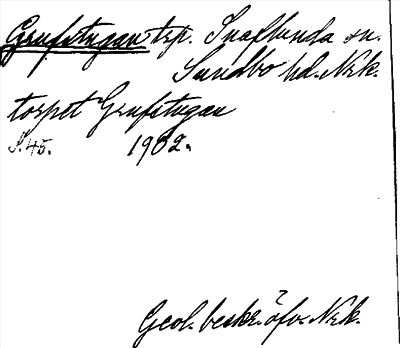 Grufstugan trp. Snaflunda sn.
Sundbo hd. Nrk.
torpet Grufstugan
S. 45. 1902.
Geol. beskr. öfv. Nrk.